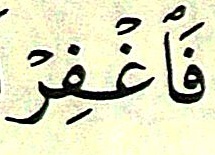 فَٱغْفِرْ